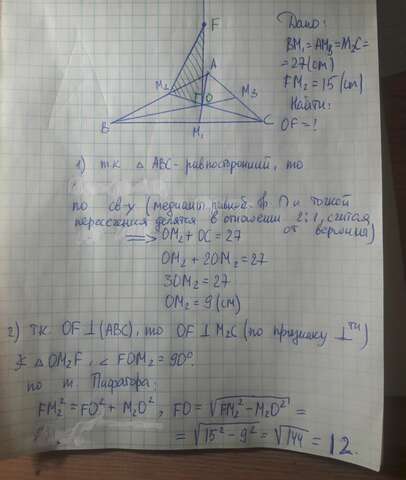 F
A
M₂
M₃
O
B
C
M₁
Дано:
BM₁=AM₃=M₂C=
=27(см)
FM₂=15(см)
Найти:
OF=?
1) т.к △ABC-равносторонний, то
по св-у (медианы равны и точкой
пересечения делятся в отношении 2:1, считая
от вершины)
⟹ OM₂+OC=27
OM₂+2OM₂=27
3OM₂=27
OM₂=9(см)
2) т.к. OF⊥(ABC), то OF⊥M₂C (по признаку ⊥ти)
△OM₂F, ∠FOM₂=90°.
по т. Пифагора:
FM₂²=FO²+M₂O², FO=√FM₂²-M₂O² =
=√15²-9²=√144=12.